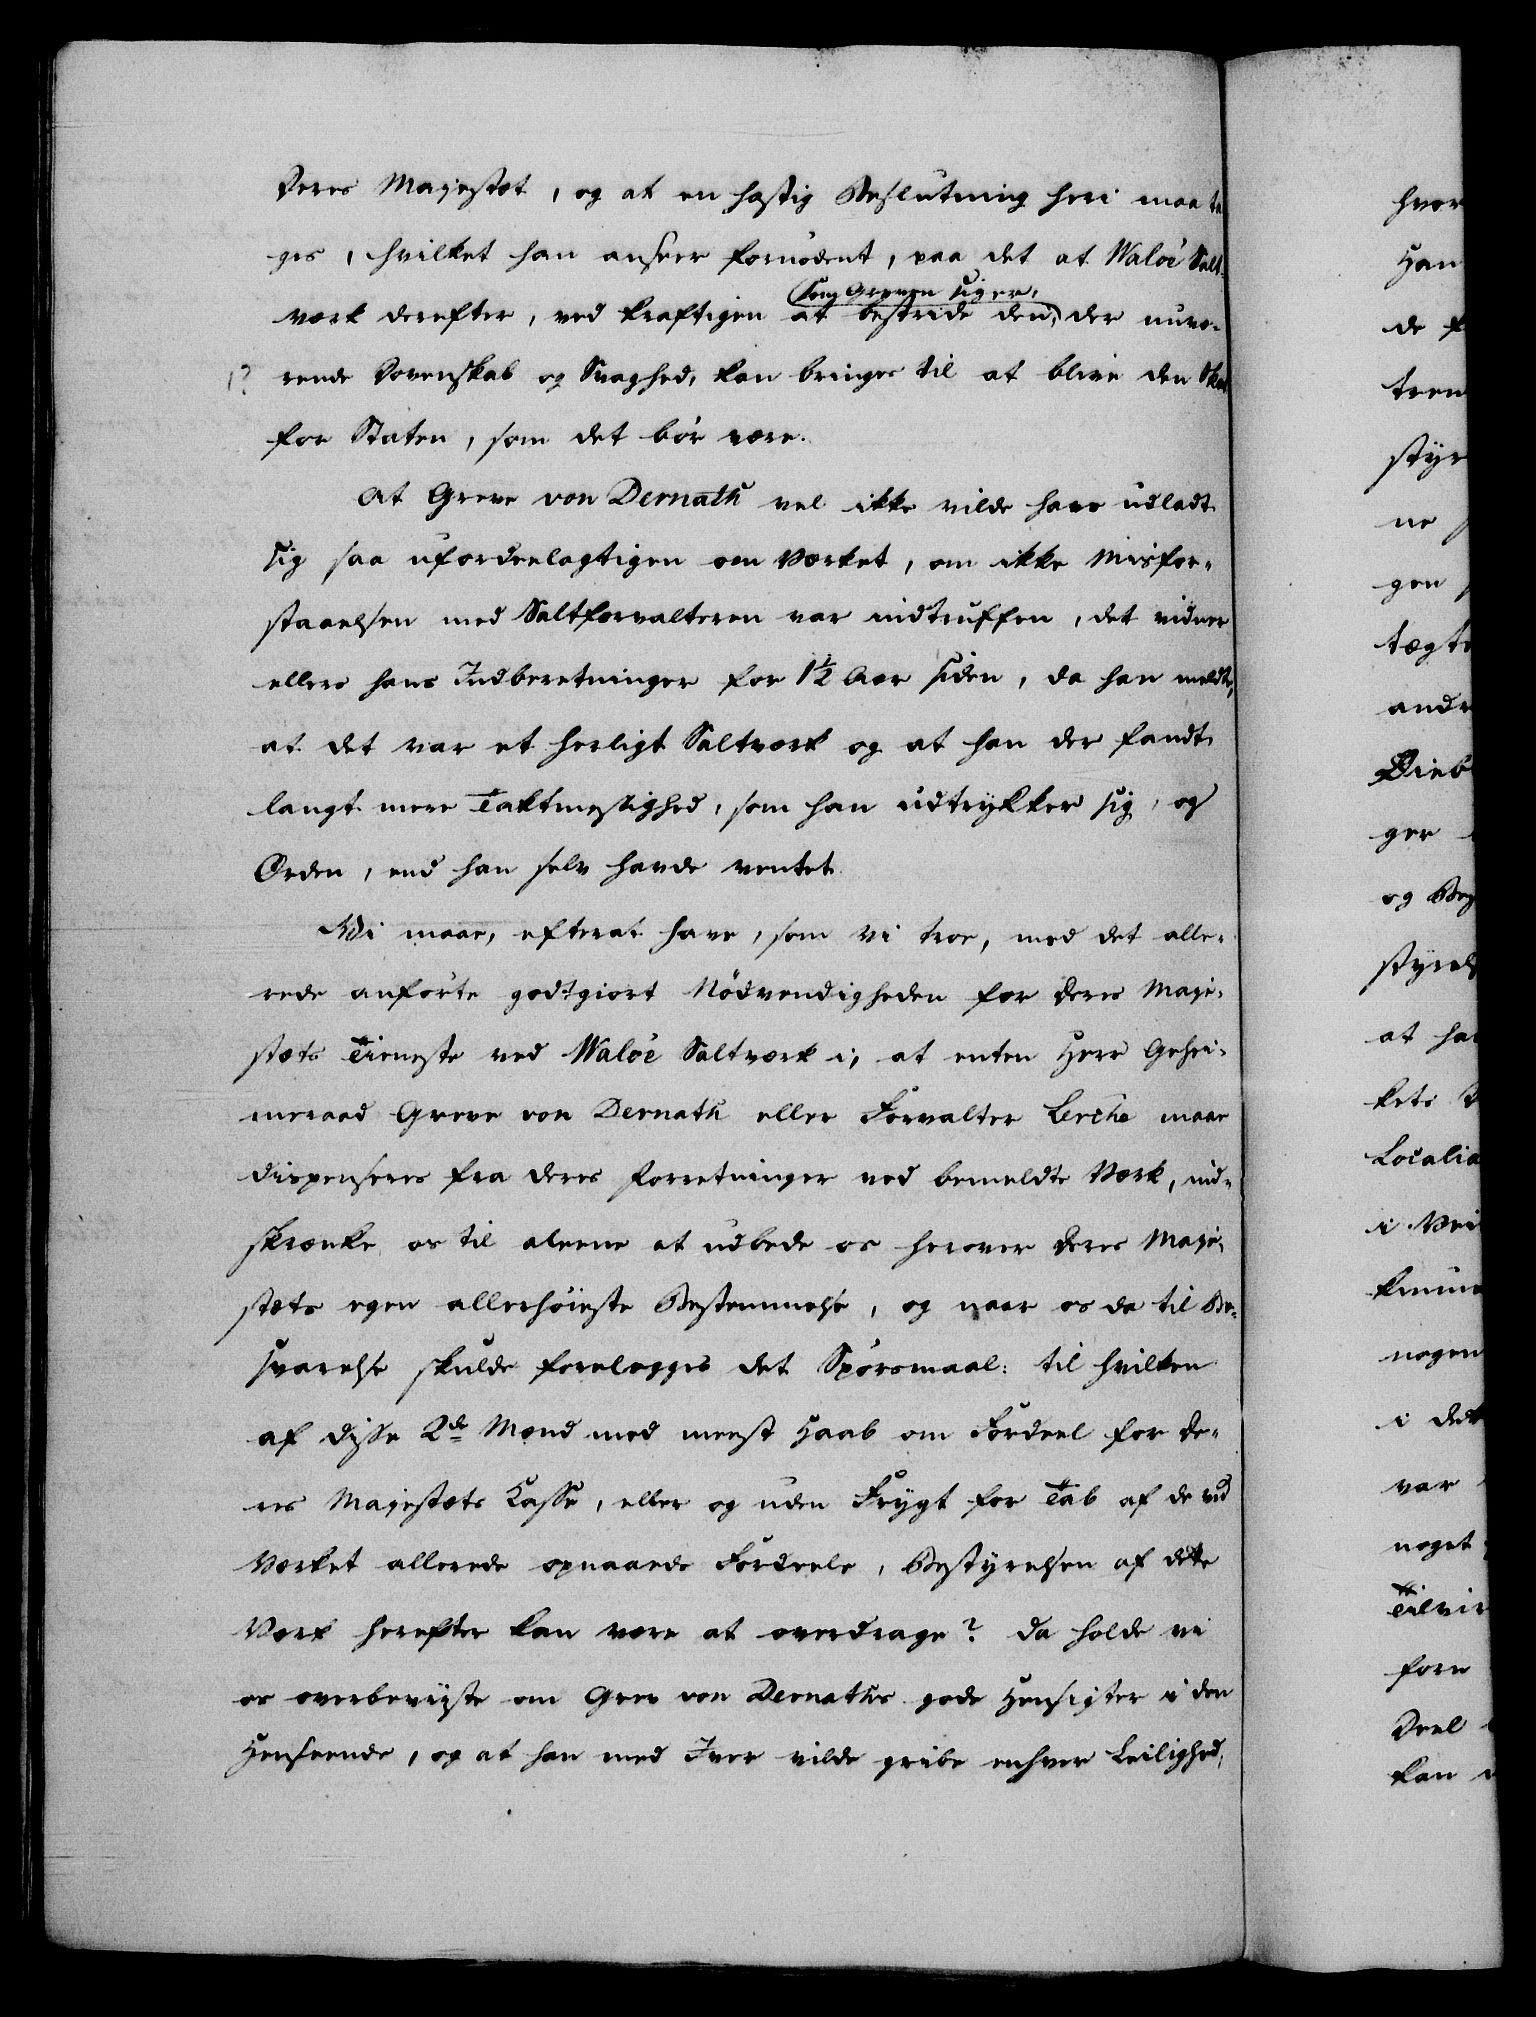 Deres Majestæt, og at en hastig Beslutning heri maa ta
ges, hvilket han anseer fornødent, paa det at Waløe Salt-
(som Greven siger,
værk derefter, ved kraftigen at bestride den) der nuvæ-
!? rende Dovenskab og Svaghed, kan bringes til at blive den Skat
for Staten, som det bør være.
At Greve von Dernath vel ikke vilde have udladt
sig saa ufordeelagtigen om Værket, om ikke Misfor-
staaelsen med Saltforvalteren var indtruffen, det vidner
ellers hans Indberetninger for 1½ Aar siden, da han meldte,
at det var et herligt Saltværk og at han der fandt
langt mere Taktmessighed, som han udtrykker sig, og
Orden, end han selv havde ventet.
Vi maae, efterat have, som vi troe, med det alle-
rede anførte godtgiort Nødvendigheden for Deres Maje-
stæts Tieneste ved Waløe Saltværk i, at enten Herr Gehei-
meraad Greve von Dernath eller Forvalter Lerche maae
dispenseres fra deres Forretninger ved bemeldte Værk, ind-
skrænke os til alene at udbede os herover Deres Maje-
stæts egen allerhøieste Bestemmelse, og naar os da til Be-
svarelse skulde forelægges det Spørsmaal: til hvilken
af disse 2de Mænd med meest Haab om Fordeel for De-
res Majestæts Casse, eller og uden Frygt for Tab af de ved
Værket allerede opnaaede Fordeele, Bestyrelsen af dette
Værk herefter kan være at overdrage? da holde vi
os overbeviiste om Grev von Dernaths gode Hensigter i den
Henseende, og at han med Iver vilde gribe enhver Leilighed,
hver
Han
de f
tren
styr
ne
gen
tægte
andr
Dieb
ger
og Beg
styrels
at ha
kets
Localia
i Vei
kunne
nogen
i dett
var
noget
Tilvir
fore
Deel
kan